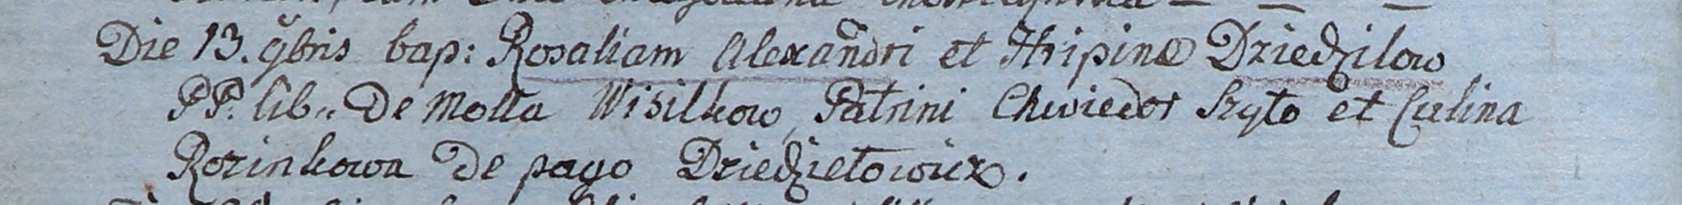 Die 13. 9bris bap: Rosaliam Alexandri et Hripinæ Dziedzilow
PP. lib: De Molla Wisilkow, Patrini Chwiedor Szyto et Culina
Rozinkowa De pago Dziedzietowicz.